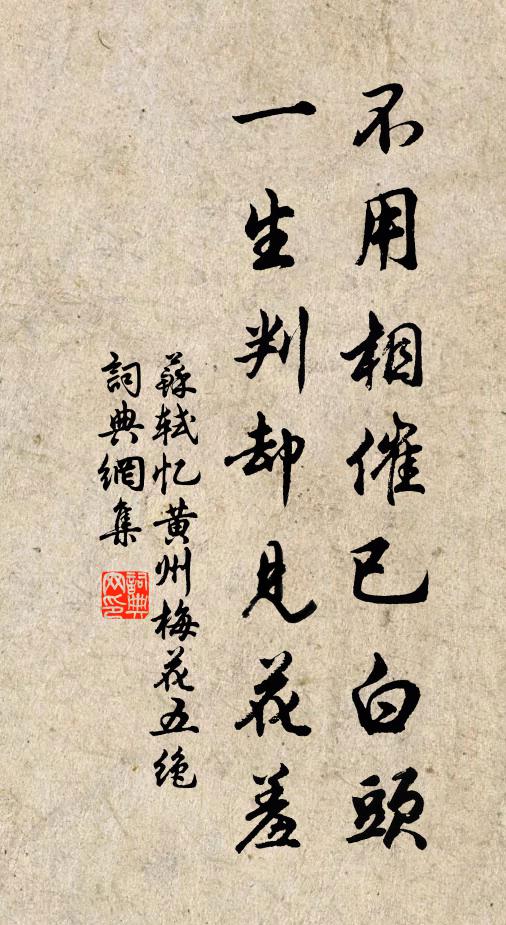 不用相催已白頭
一生判却見花羞
蘇軾忆黄州梅花五绝
詞典網集
詞典网印